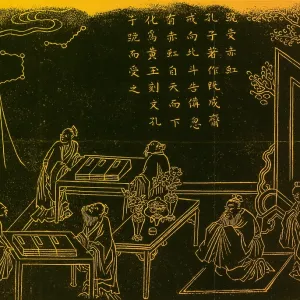 跪受赤虹
孔子著作既成齋
戒向北斗告備忽
有赤虹自天而下
化為黃玉刻文孔
子跪而受之